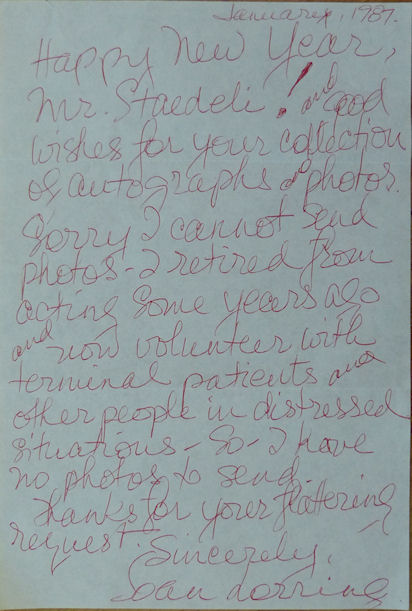 January, 1987.
Happy New Year,
Mr. Staedeli! and good
wishes for your collection
of autographs & photos.
Sorry I cannot send
photos - I retired from
acting some years ago
and now volunteer with
terminal patients and
other people in distressed
situations - So - I have
no photos to send.
Thanks for your flattering
request.
Sincerely,
Joan Lorring